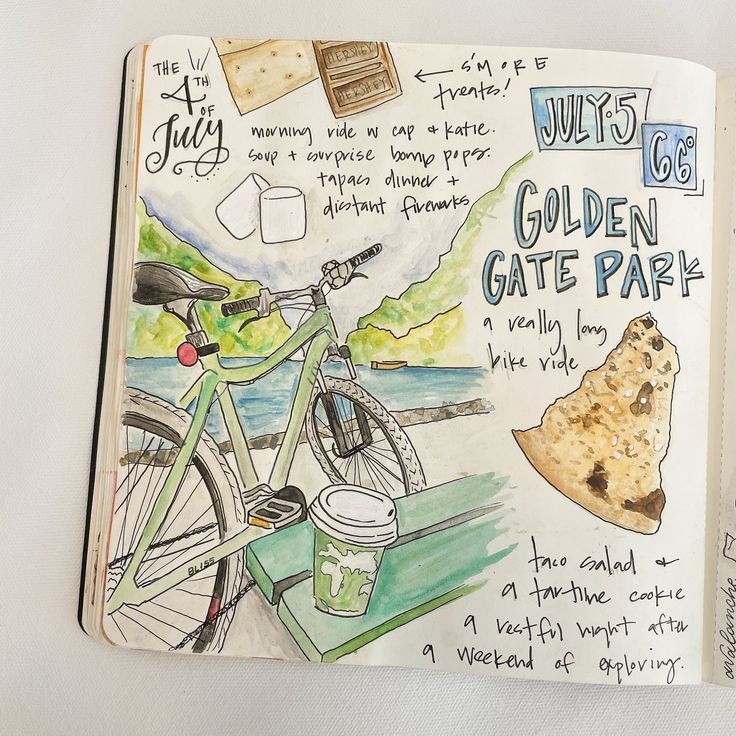 THE
4TH
OF
July
HERSHEY
HERSHEY
← S'MORE
treats!
morning ride w cap & katie.
soup + surprise bomb pops.
tapas dinner +
distant fireworks
JULY·5
66°
GOLDEN
GATE PARK
a really long
bike ride
BLISS
taco salad &
a tartine cookie
a restful night after
a weekend of exploring.
avalanche